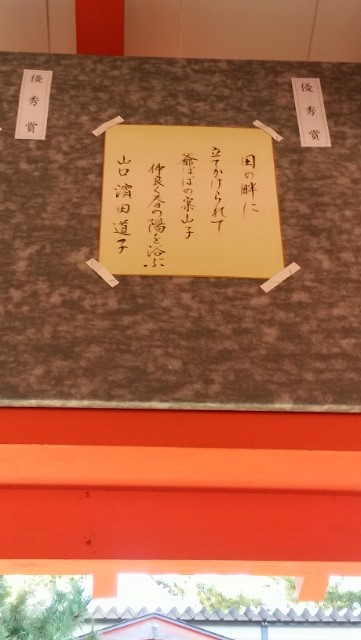 優秀賞
田の畔に
立てかけられて
爺ばばの案山子
仲良く春の陽を浴ぶ
山口 濱田道子
優秀賞